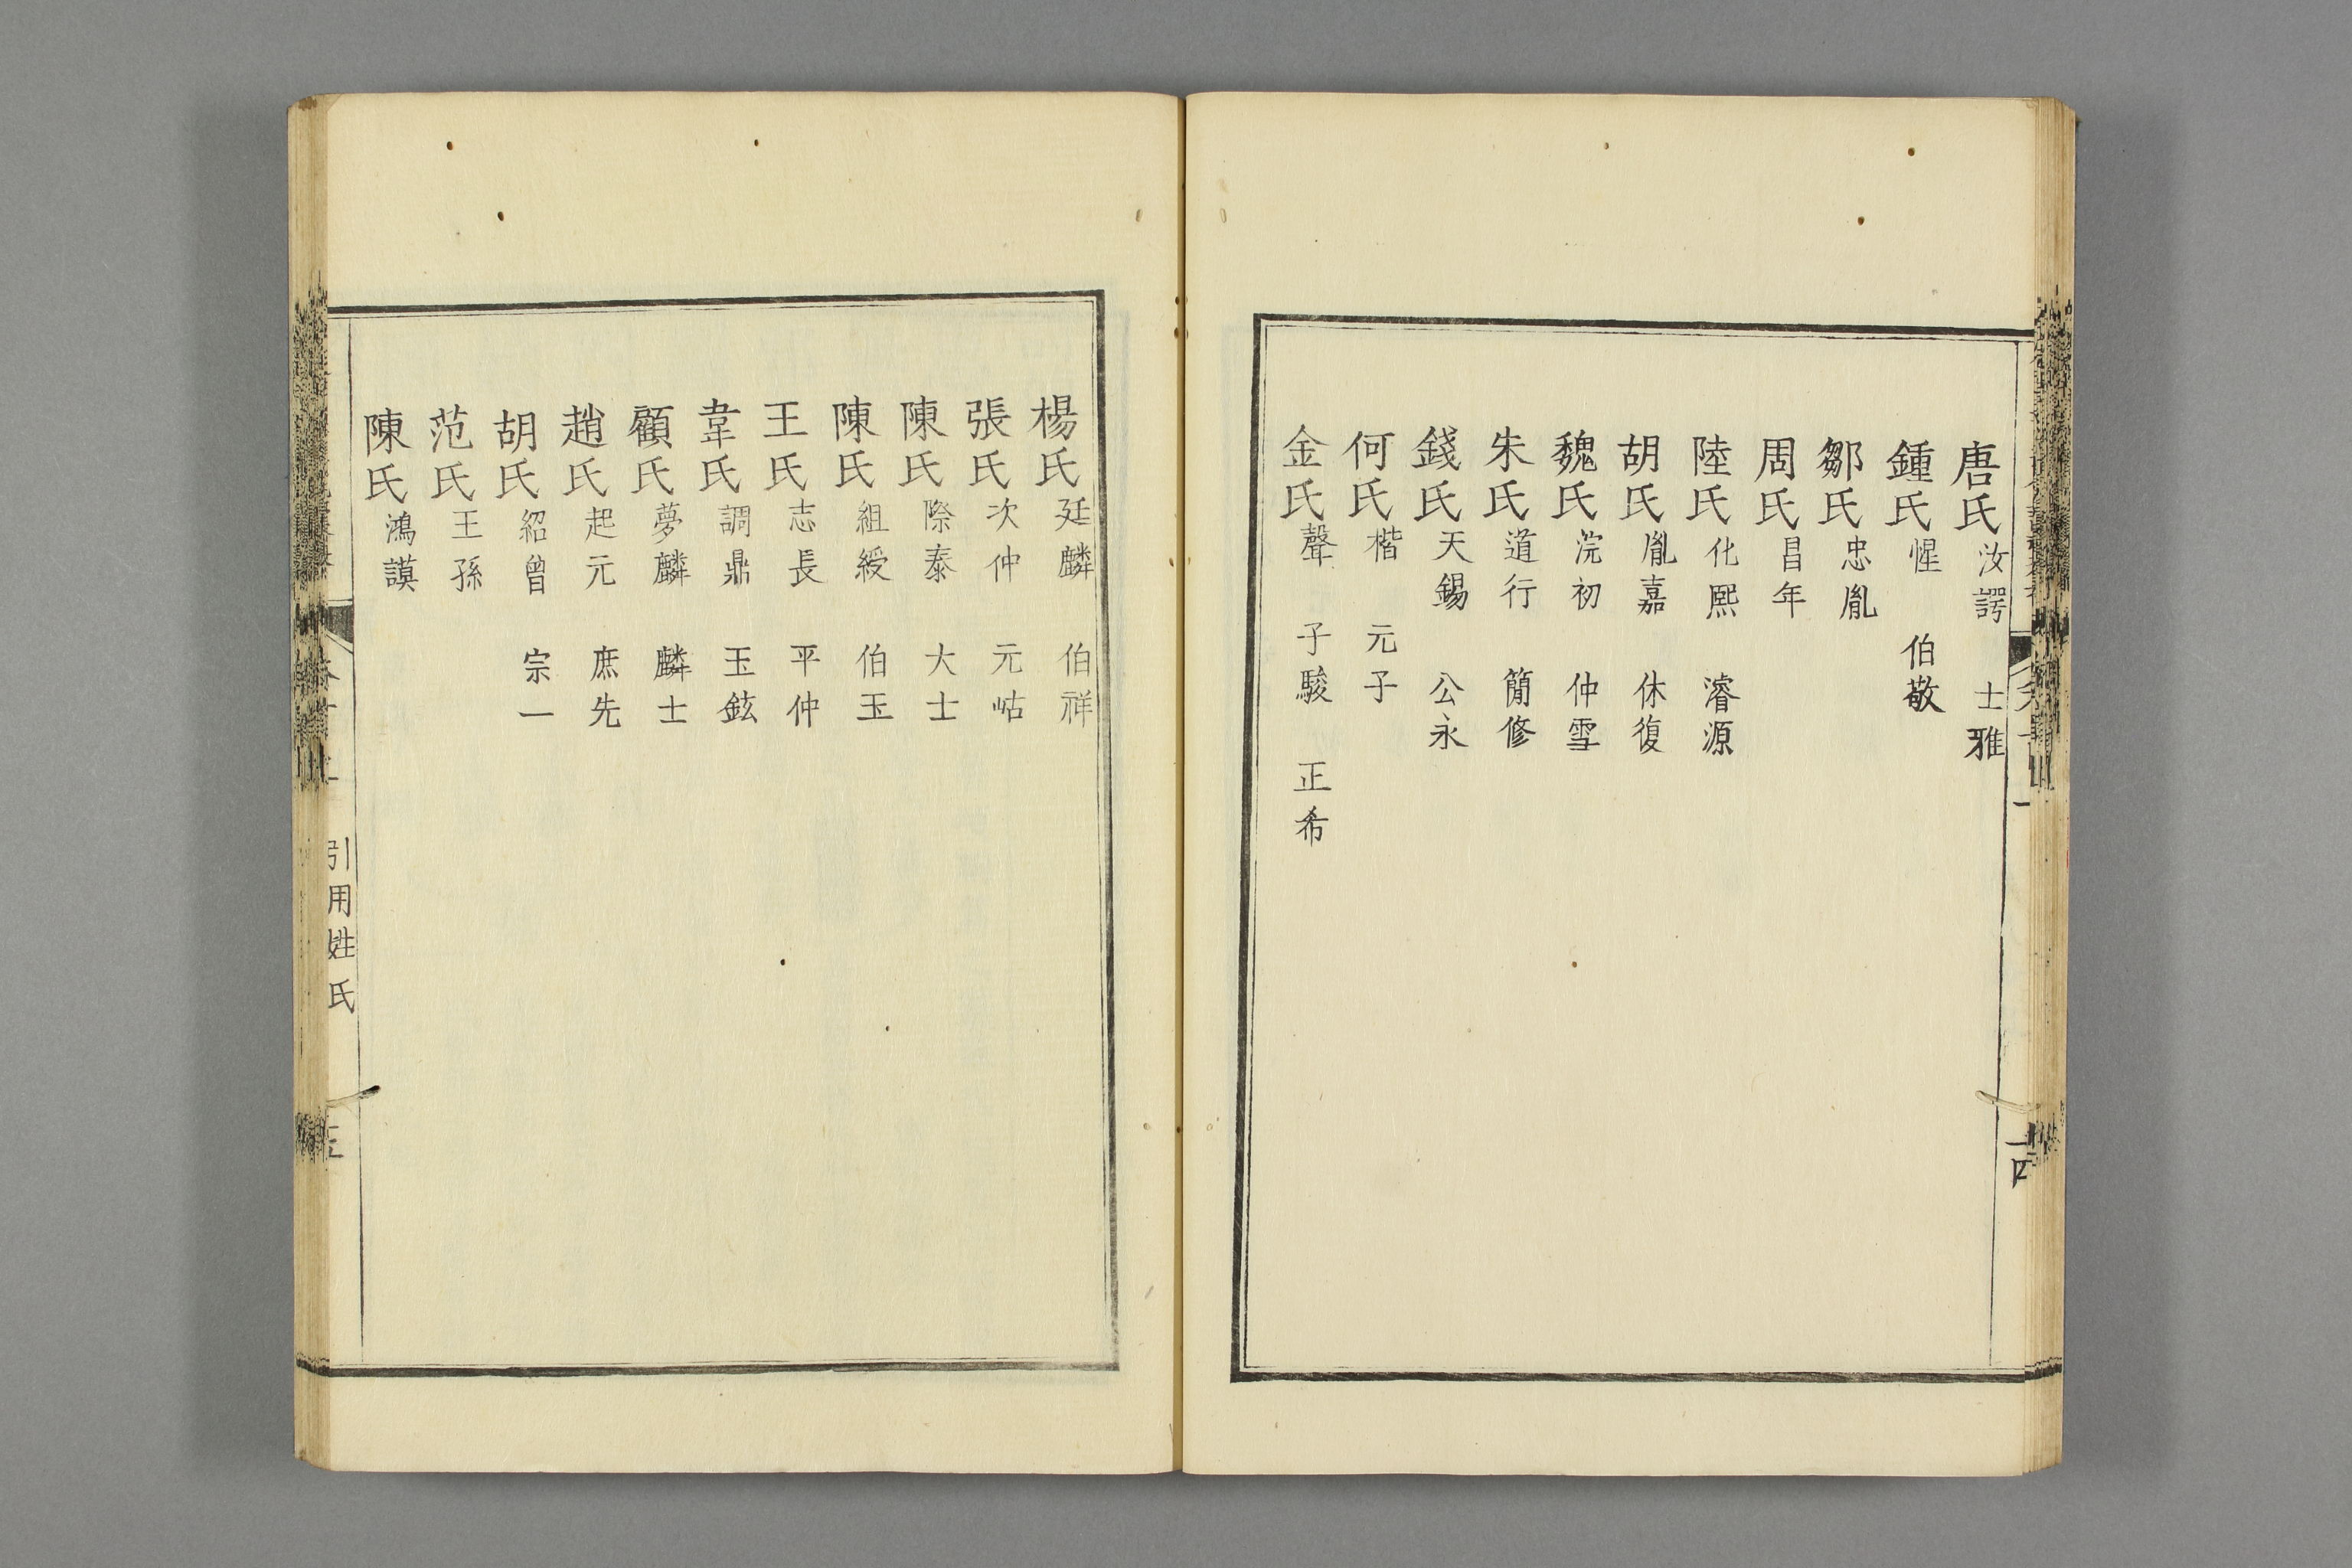 唐氏 汝諤 士雅
鍾氏 惺 伯敬
鄒氏 忠胤
周氏 昌年
陸氏 化熙 濬源
胡氏 胤嘉 休復
魏氏 浣初 仲雪
朱氏 道行 簡修
錢氏 天錫 公永
何氏 楷 元子
金氏 聲 子駿 正希
楊氏 廷麟 伯祥
張氏 次仲 元岵
陳氏 際泰 大士
陳氏 組綬 伯玉
王氏 志長 平仲
韋氏 調鼎 玉鉉
顧氏 夢麟 麟士
趙氏 起元 庶先
胡氏 紹曾 宗一
范氏 王孫
陳氏 鴻謨
引用姓氏